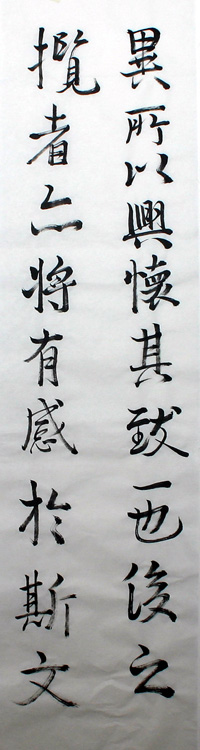 異所以興懷其致一也後之
攬者亦將有感於斯文